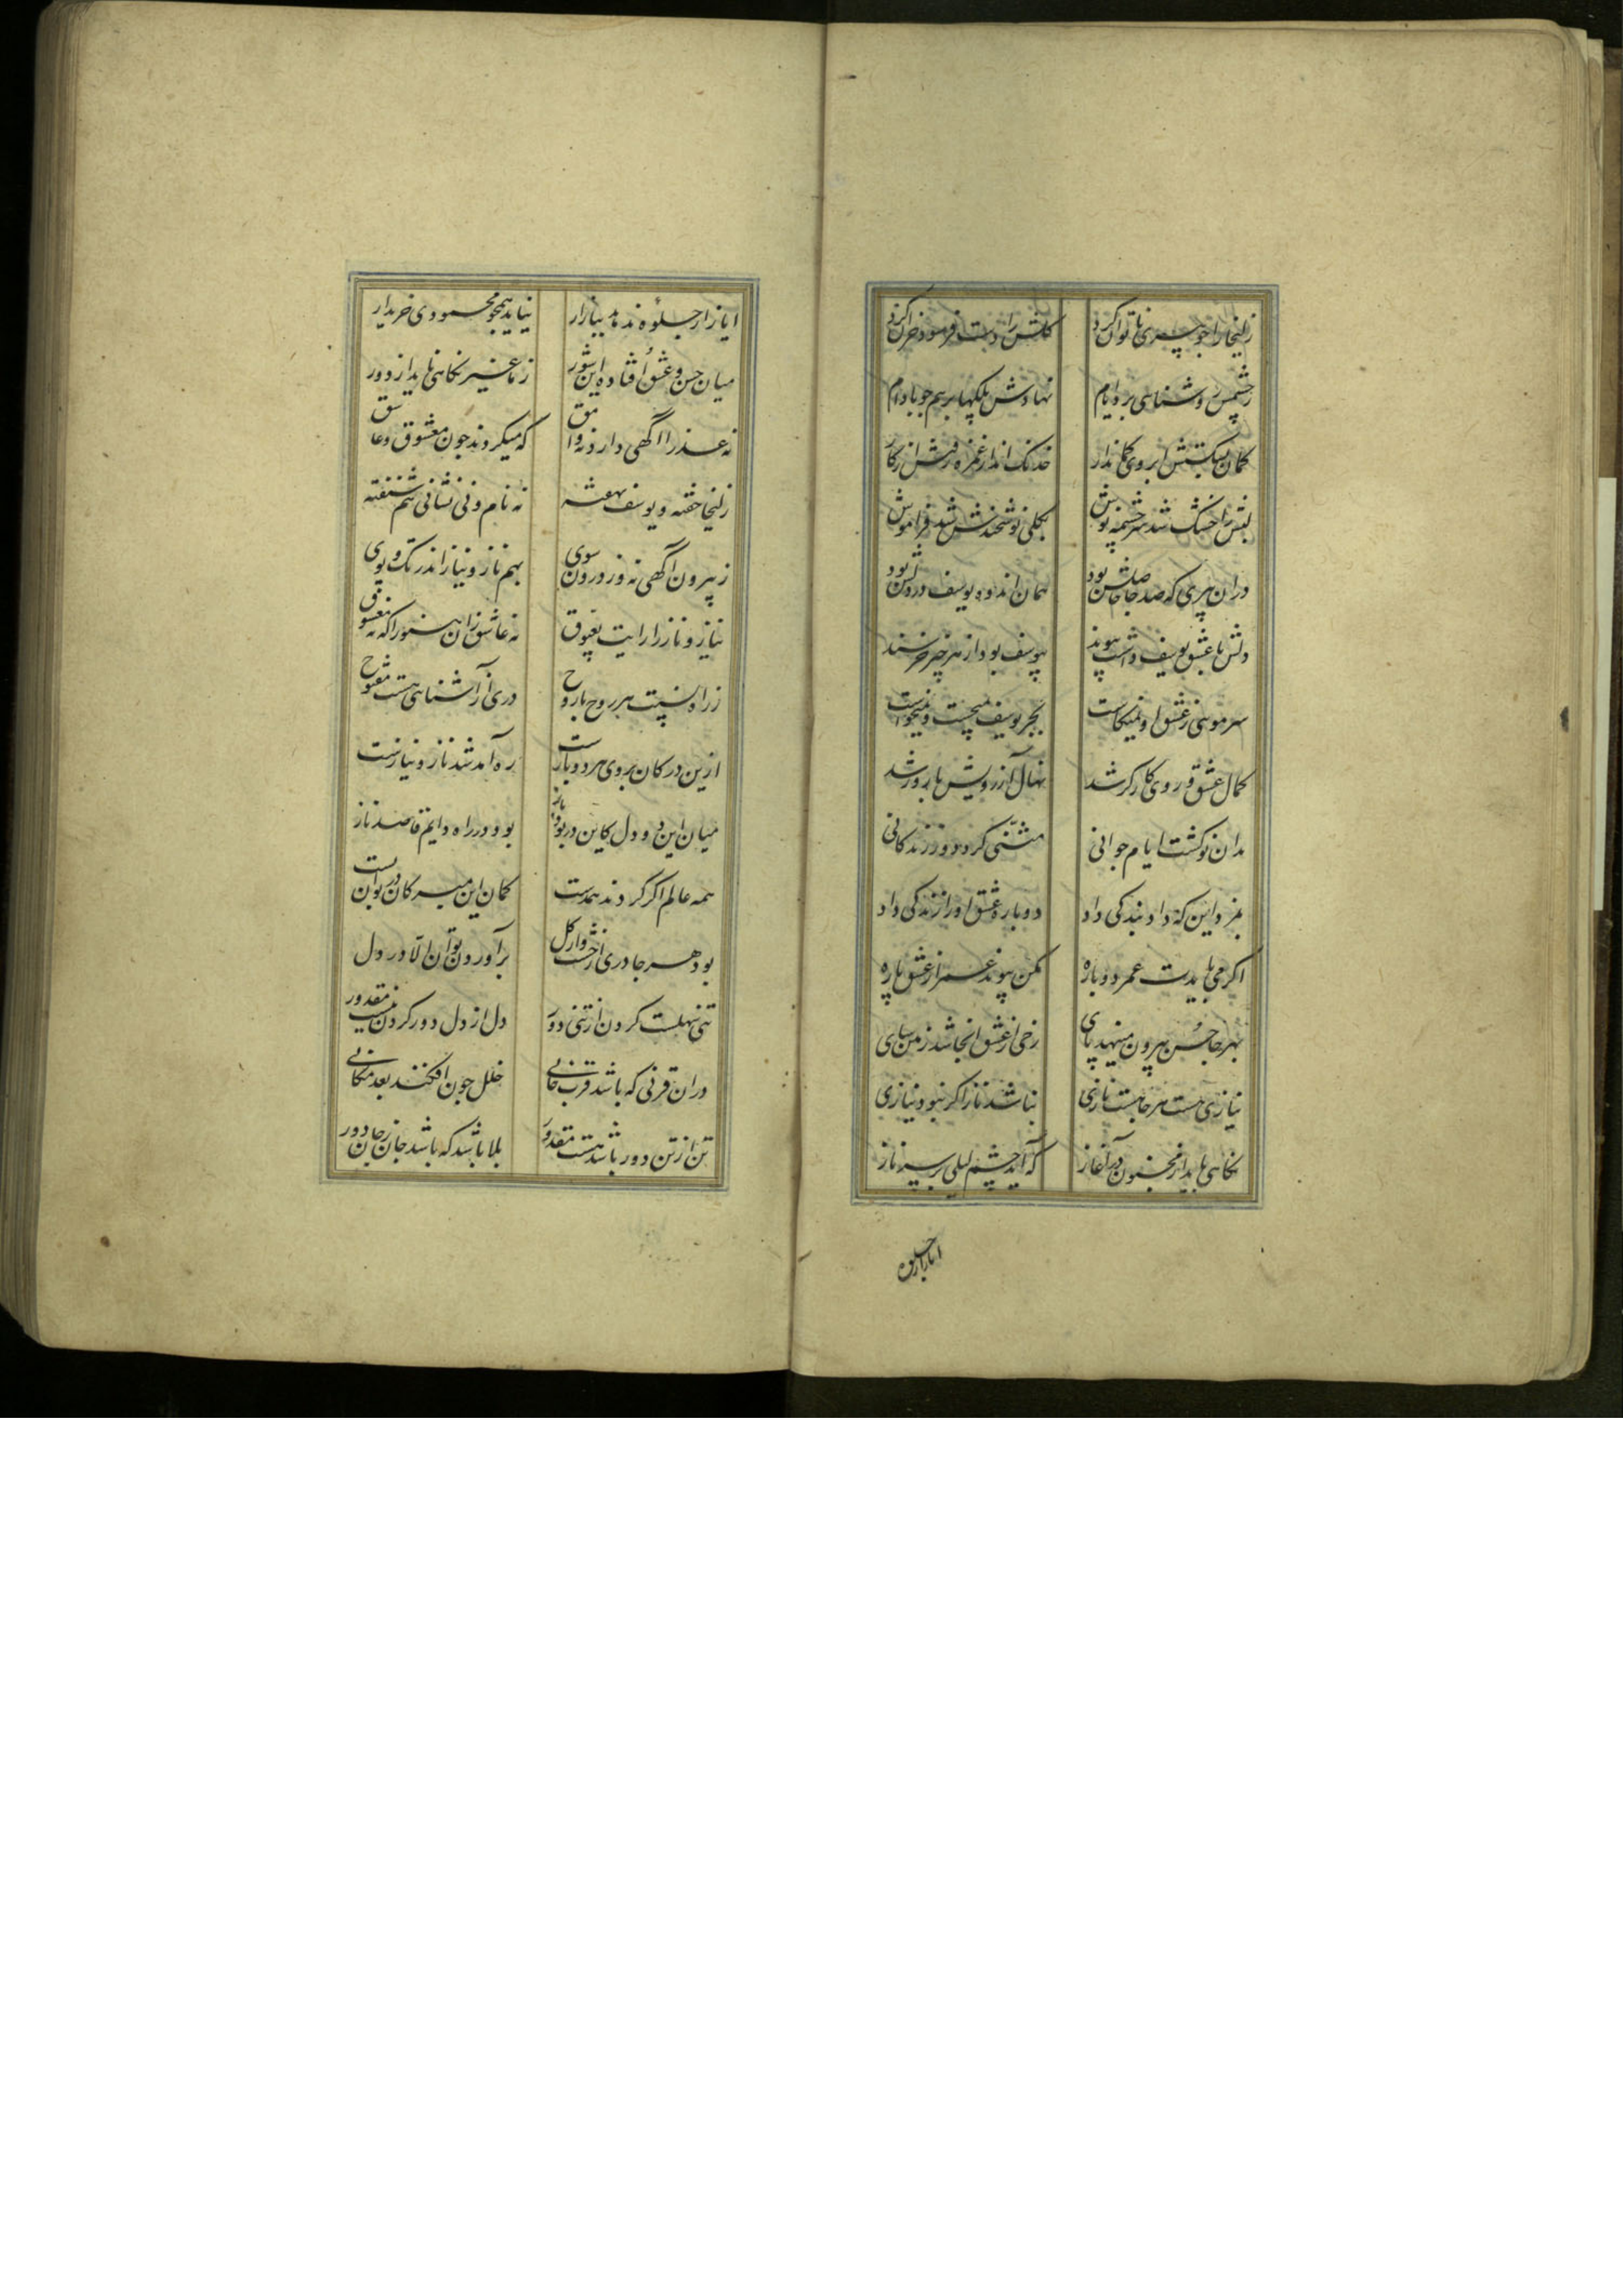 زلیخا را چو پیری ناتوان کرد گلش را دست فرسود خزان کرد
ز چشمش روشنایی برد ایام نهادش پلکها برهم چو بادام
کمان بشکستش ابروی کماندار خدنک انداز غمزه رفتش از کار
لبش را خشک شد سرچشمه نوش بکلی نوشخندش شد فراموش
در ان پیری که صد جا حاصلش بود همان اندوه یوسف در دلش بود
دلش با عشق یوسف داشت پیوند بیوسف بود از هر چیز خرسند
سر مویی ز عشق او نمیکاست بجز یوسف نمیجست و نمیخواست
کمال عشق در وی کارکر شد نهال آرزویش بارور شد
بدان نو کشت ایام جوانی مثنی کرد دور زندکانی
بمزد این که داد بندکی داد دوباره عشق او را زندکی داد
اکر می بایدت عمر دوباره مکن پیوند عمر از عشق پاره
بهر جا حسن بیرون مینهد پای رخی از عشق انجا شد زمین سای
نیازی هست هر جا هست نازی نباشد ناز اکر نبود نیازی
نکاهی باید از مجنون در آغاز که آید چشم لیلی بر سر ناز
ایاز ار جلوه
ایاز ار جلوه ندهد ببازار نیاید همچو محمودی خریدار
میان حسن و عشق افتاده این شور ز ما غیر نکاهی ناید از دور
نه عذرا آگهی دارد نه وامق که میکردند چون معشوق و عاشق
زلیخا خفته و یوسف نهفته نه نام و نی نشانی هم شنفته
ز بیرون آگهی نه وز درون سوی بهم ناز و نیاز اندر تک و پوی
نیاز و ناز را رایت بعیوق نه عاشق زان هنوز آکه نه معشوق
ز راه نسبت هر روح با روح دری از آشنایی هست مفتوح
ازین در کان بروی هر دو بازست ره آمد شد ناز و نیازست
میان این دو دل کاین در بود باز بود در راه دایم قاصد ناز
همه عالم اکر کردند همدست کمان این مبر کان در توان بست
بود هر جا دری از خشت و از گل برآوردن توان الا در دل
تنی سهلست کردن از تنی دور دل از دل دور کردن نیست مقدور
در ان قربی که باشد قرب جانی خلل چون افکند بعد مکانی
تن از تن دور باشد هست مقدور بلا باشد که باشد جان ز جان دور